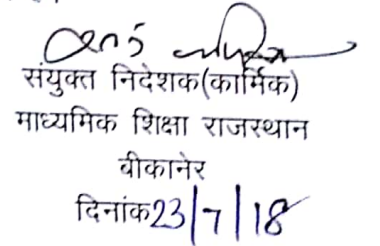 संयुक्त निदेशक(कार्मिक)
माध्यमिक शिक्षा राजस्थान
बीकानेर
दिनांक23/7/18